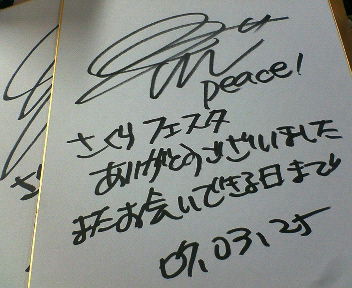 peace!
さくらフェスタ
ありがとうございました
またお会いできる日まで
07.03.25